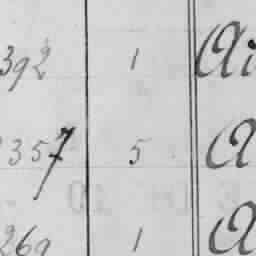 392 1 Ai
357 5 A
269 1 A